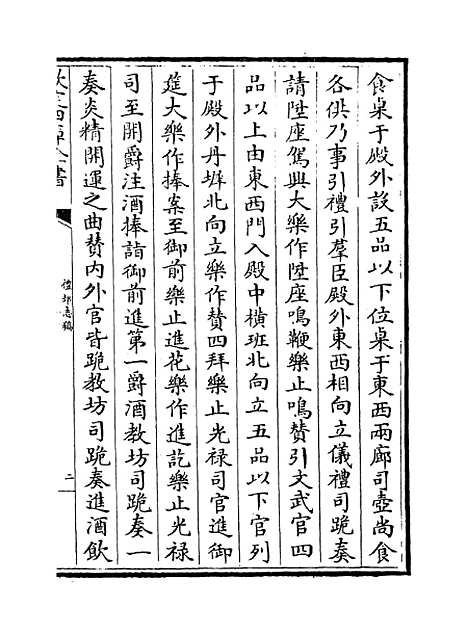 食桌于殿外設五品以下位桌于東西兩廊司壺尚食
各供乃事引禮引羣臣殿外東西相向立儀禮司跪奏
請陞座駕興大樂作陞座鳴鞭樂止鳴贊引文武官四
品以上由東西門入殿中橫班北向立五品以下官列
于殿外丹墀北向立樂作贊四拜樂止光禄司官進御
筵大樂作捧案至御前樂止進花樂作進訖樂止光禄
司至開爵注酒捧詣御前進第一爵酒教坊司跪奏一
奏炎精開運之曲贊内外官皆跪教坊司跪奏進酒飲
欽定四庫全書
禮部志稿
二